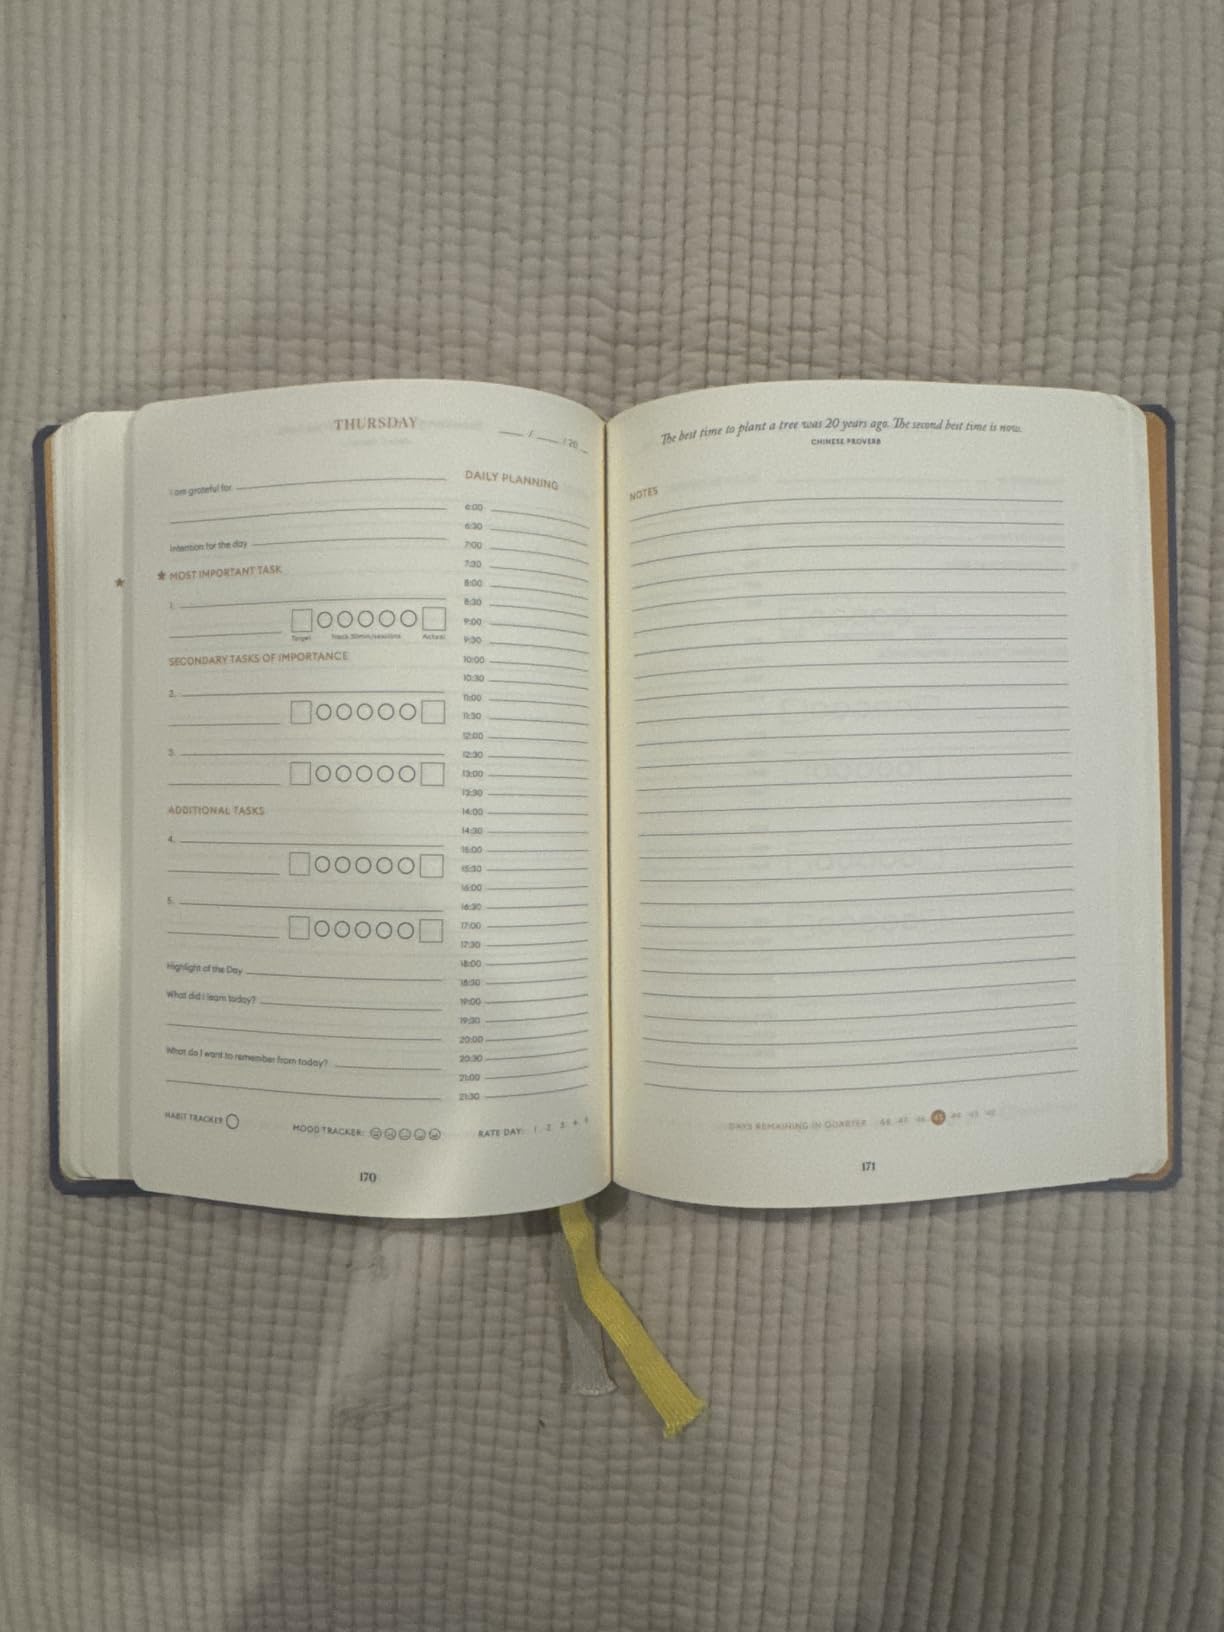 THURSDAY
/ / 20
I am grateful for
Intention for the day
MOST IMPORTANT TASK
1.
Target Track 30min/sessions Actual
SECONDARY TASKS OF IMPORTANCE
2.
3.
ADDITIONAL TASKS
4.
5.
Highlight of the Day
What did I learn today?
What do I want to remember from today?
HABIT TRACKER
MOOD TRACKER:
RATE DAY: 1 2 3 4 5
170
DAILY PLANNING
6:00
6:30
7:00
7:30
8:00
8:30
9:00
9:30
10:00
10:30
11:00
11:30
12:00
12:30
13:00
13:30
14:00
14:30
15:00
15:30
16:00
16:30
17:00
17:30
18:00
18:30
19:00
19:30
20:00
20:30
21:00
21:30
The best time to plant a tree was 20 years ago. The second best time is now.
CHINESE PROVERB
NOTES
DAYS REMAINING IN QUARTER 48 47 46 45 44 43 42
171